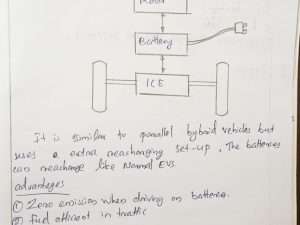 Motor
Battery
ICE
It is similar to parallel hybrid vehicles but
uses a extra recharging set-up. The batteries
can recharge like Normal EVS
advantages
① Zero emission when driving on batteries.
② Fuel efficient in traffic